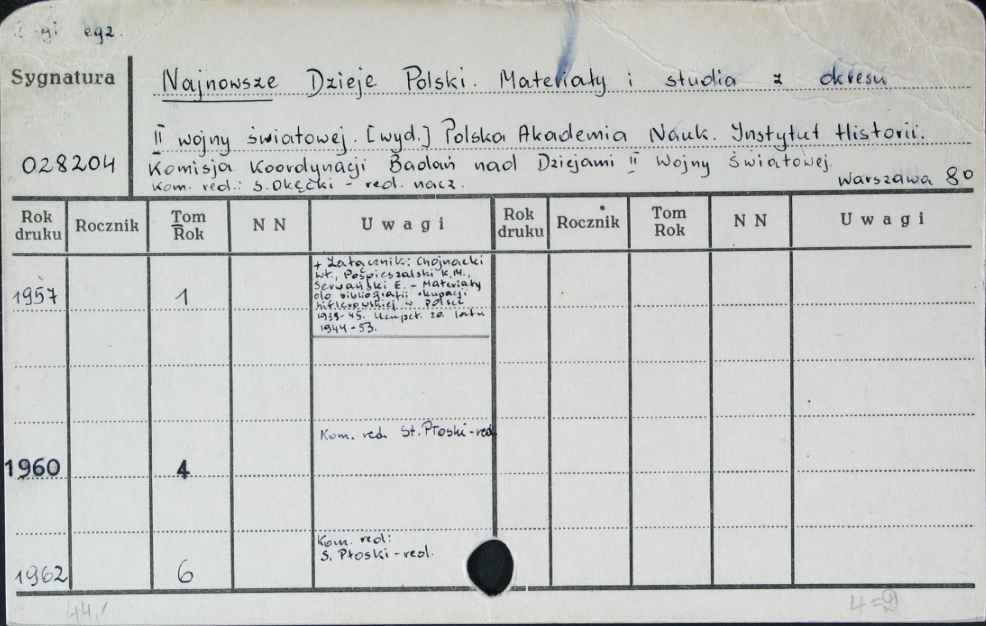 egz.
Sygnatura
Najnowsze Dzieje Polski. Materiały i studia z okresu
II wojny światowej. [wyd.] Polska Akademia Nauk. Instytut Historii.
028204
Komisja Koordynacji Badań nad Dziejami II Wojny Światowej
Kom. red.: S. Okęcki - red. nacz.
Warszawa 8°
Rok druku Rocznik Tom Rok N N Uwagi Rok druku Rocznik Tom Rok N N Uwagi
+ Załącznik: Chojnacki
Wł., Pospieszalski K.M.,
Serwański E. - Materiały
do bibliografii okupacji
hitlerowskiej w Polsce
1939-45. Uzupeł. za lata
1944-53.
1957 1
Kom. red. St. Płoski - red.
1960 4
Kom. red:
S. Płoski - red.
1962 6
44,
4=